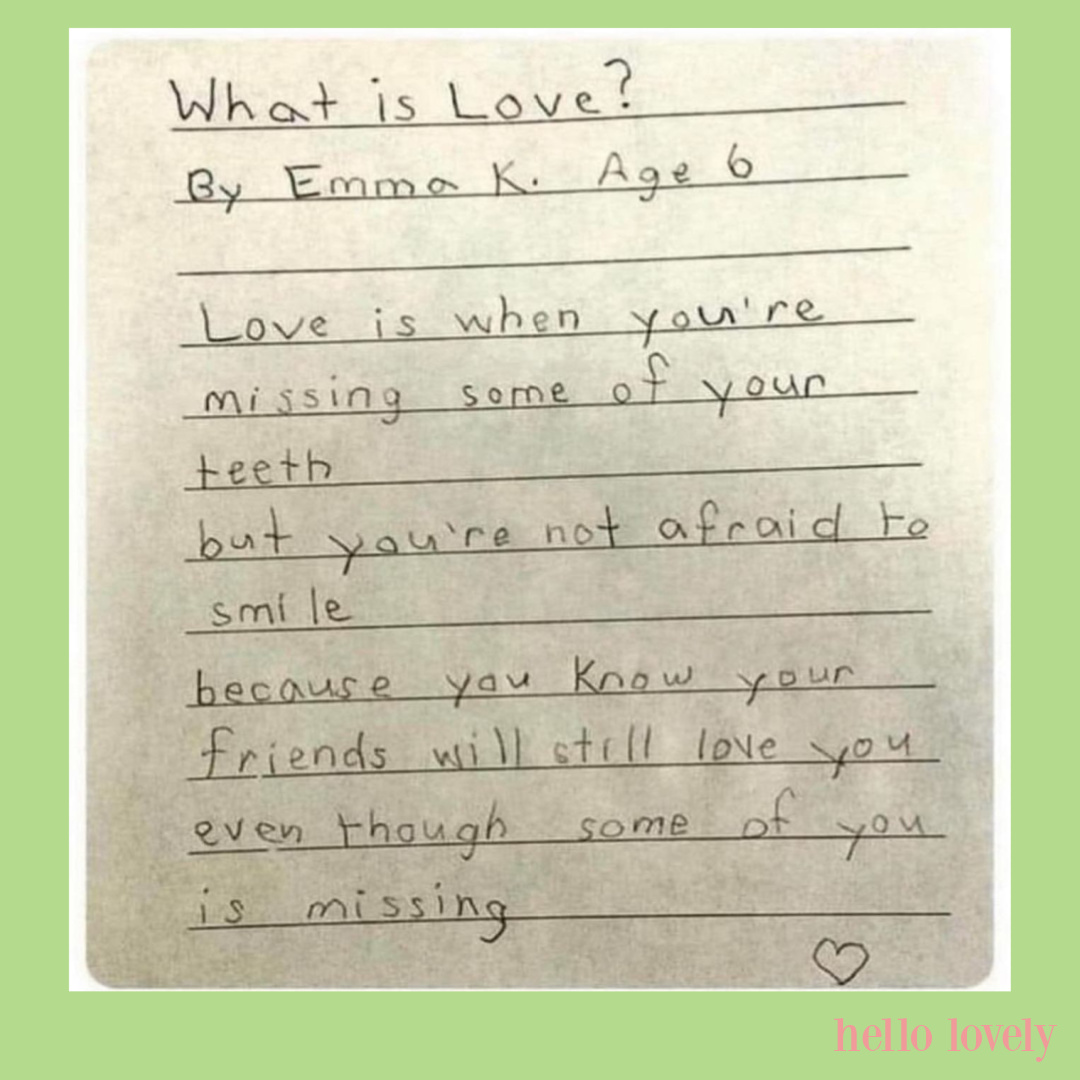 What is Love?
By Emma K. Age 6
Love is when you're
missing some of your
teeth
but you're not afraid to
smile
because you know your
friends will still love you
even though some of you
is missing
hello lovely